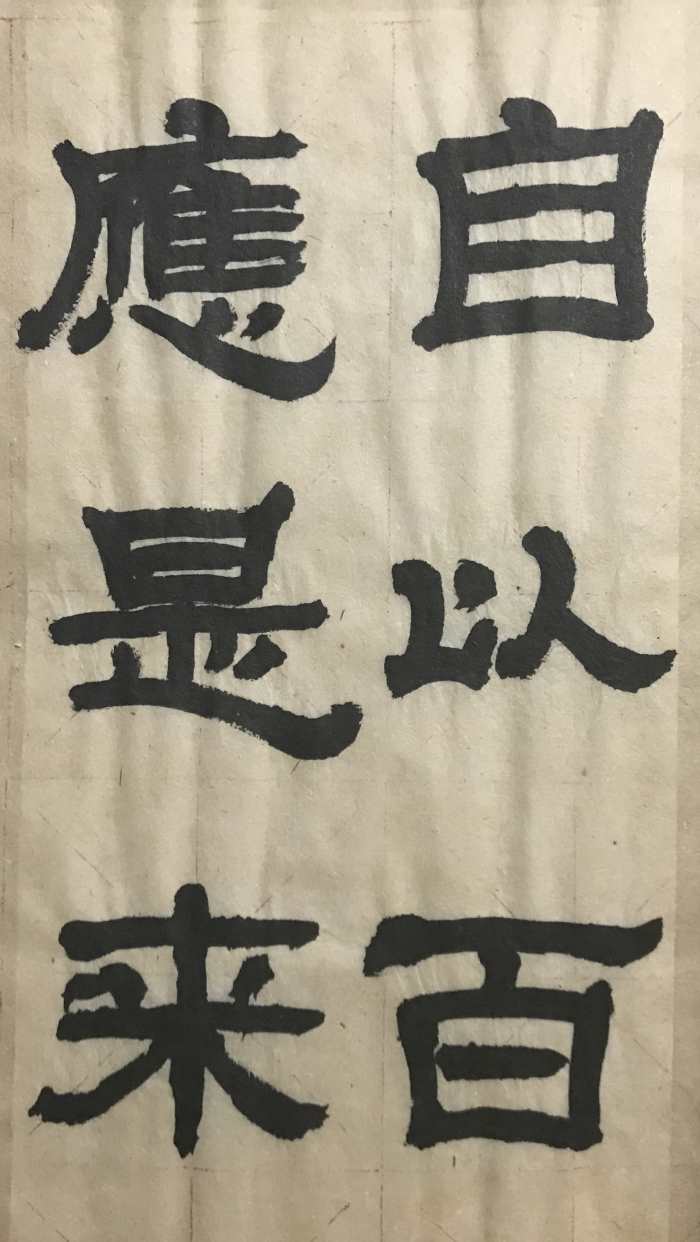 自以百
應是来